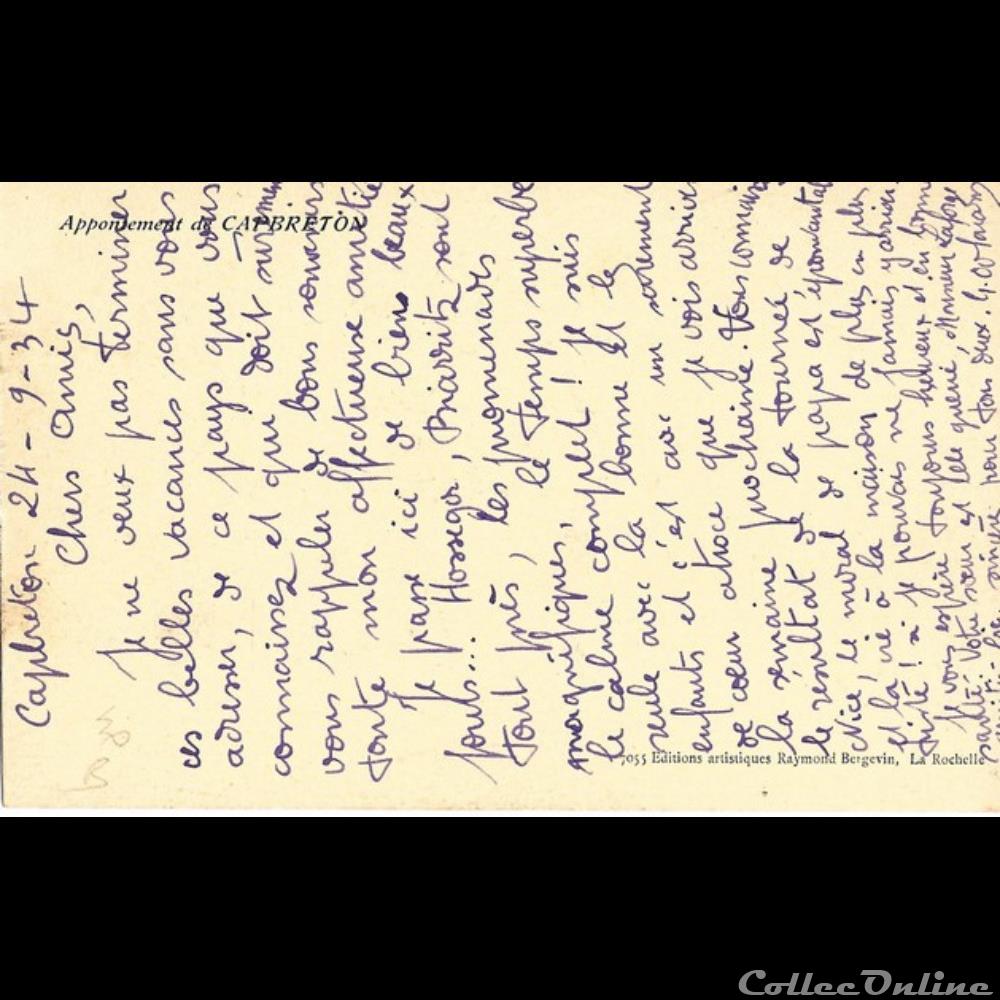 Appontement de CAPBRETON
Capbreton 24-9-34
Chers amis,
Je ne veux pas terminer
ces belles vacances sans vous
adresser, de ce pays que vous
connaissez et qui doit
vous rappeler de bons souvenirs
toute mon affectueuse amitié
Je passe ici de biens beaux
jours... Hossegor, Biarritz sont
tout près, les promenades
magnifiques, le temps superbe
le calme complet ! Je suis
seule avec la bonne et les
enfants et c'est avec un serrement
de cœur atroce que je vois arriver
la semaine prochaine. Vous connaissez
le résultat de la tournée de
Nice, le moral de papa est épouvantable
et la vie à la maison de plus en plus
triste ! si je pouvais ne jamais y arriver
Je vous espère toujours heureux et en bonne
santé. Votre sœur est elle guérie
pour tous deux.
7055 Editions artistiques Raymond Bergevin, La Rochelle
CollecOnline